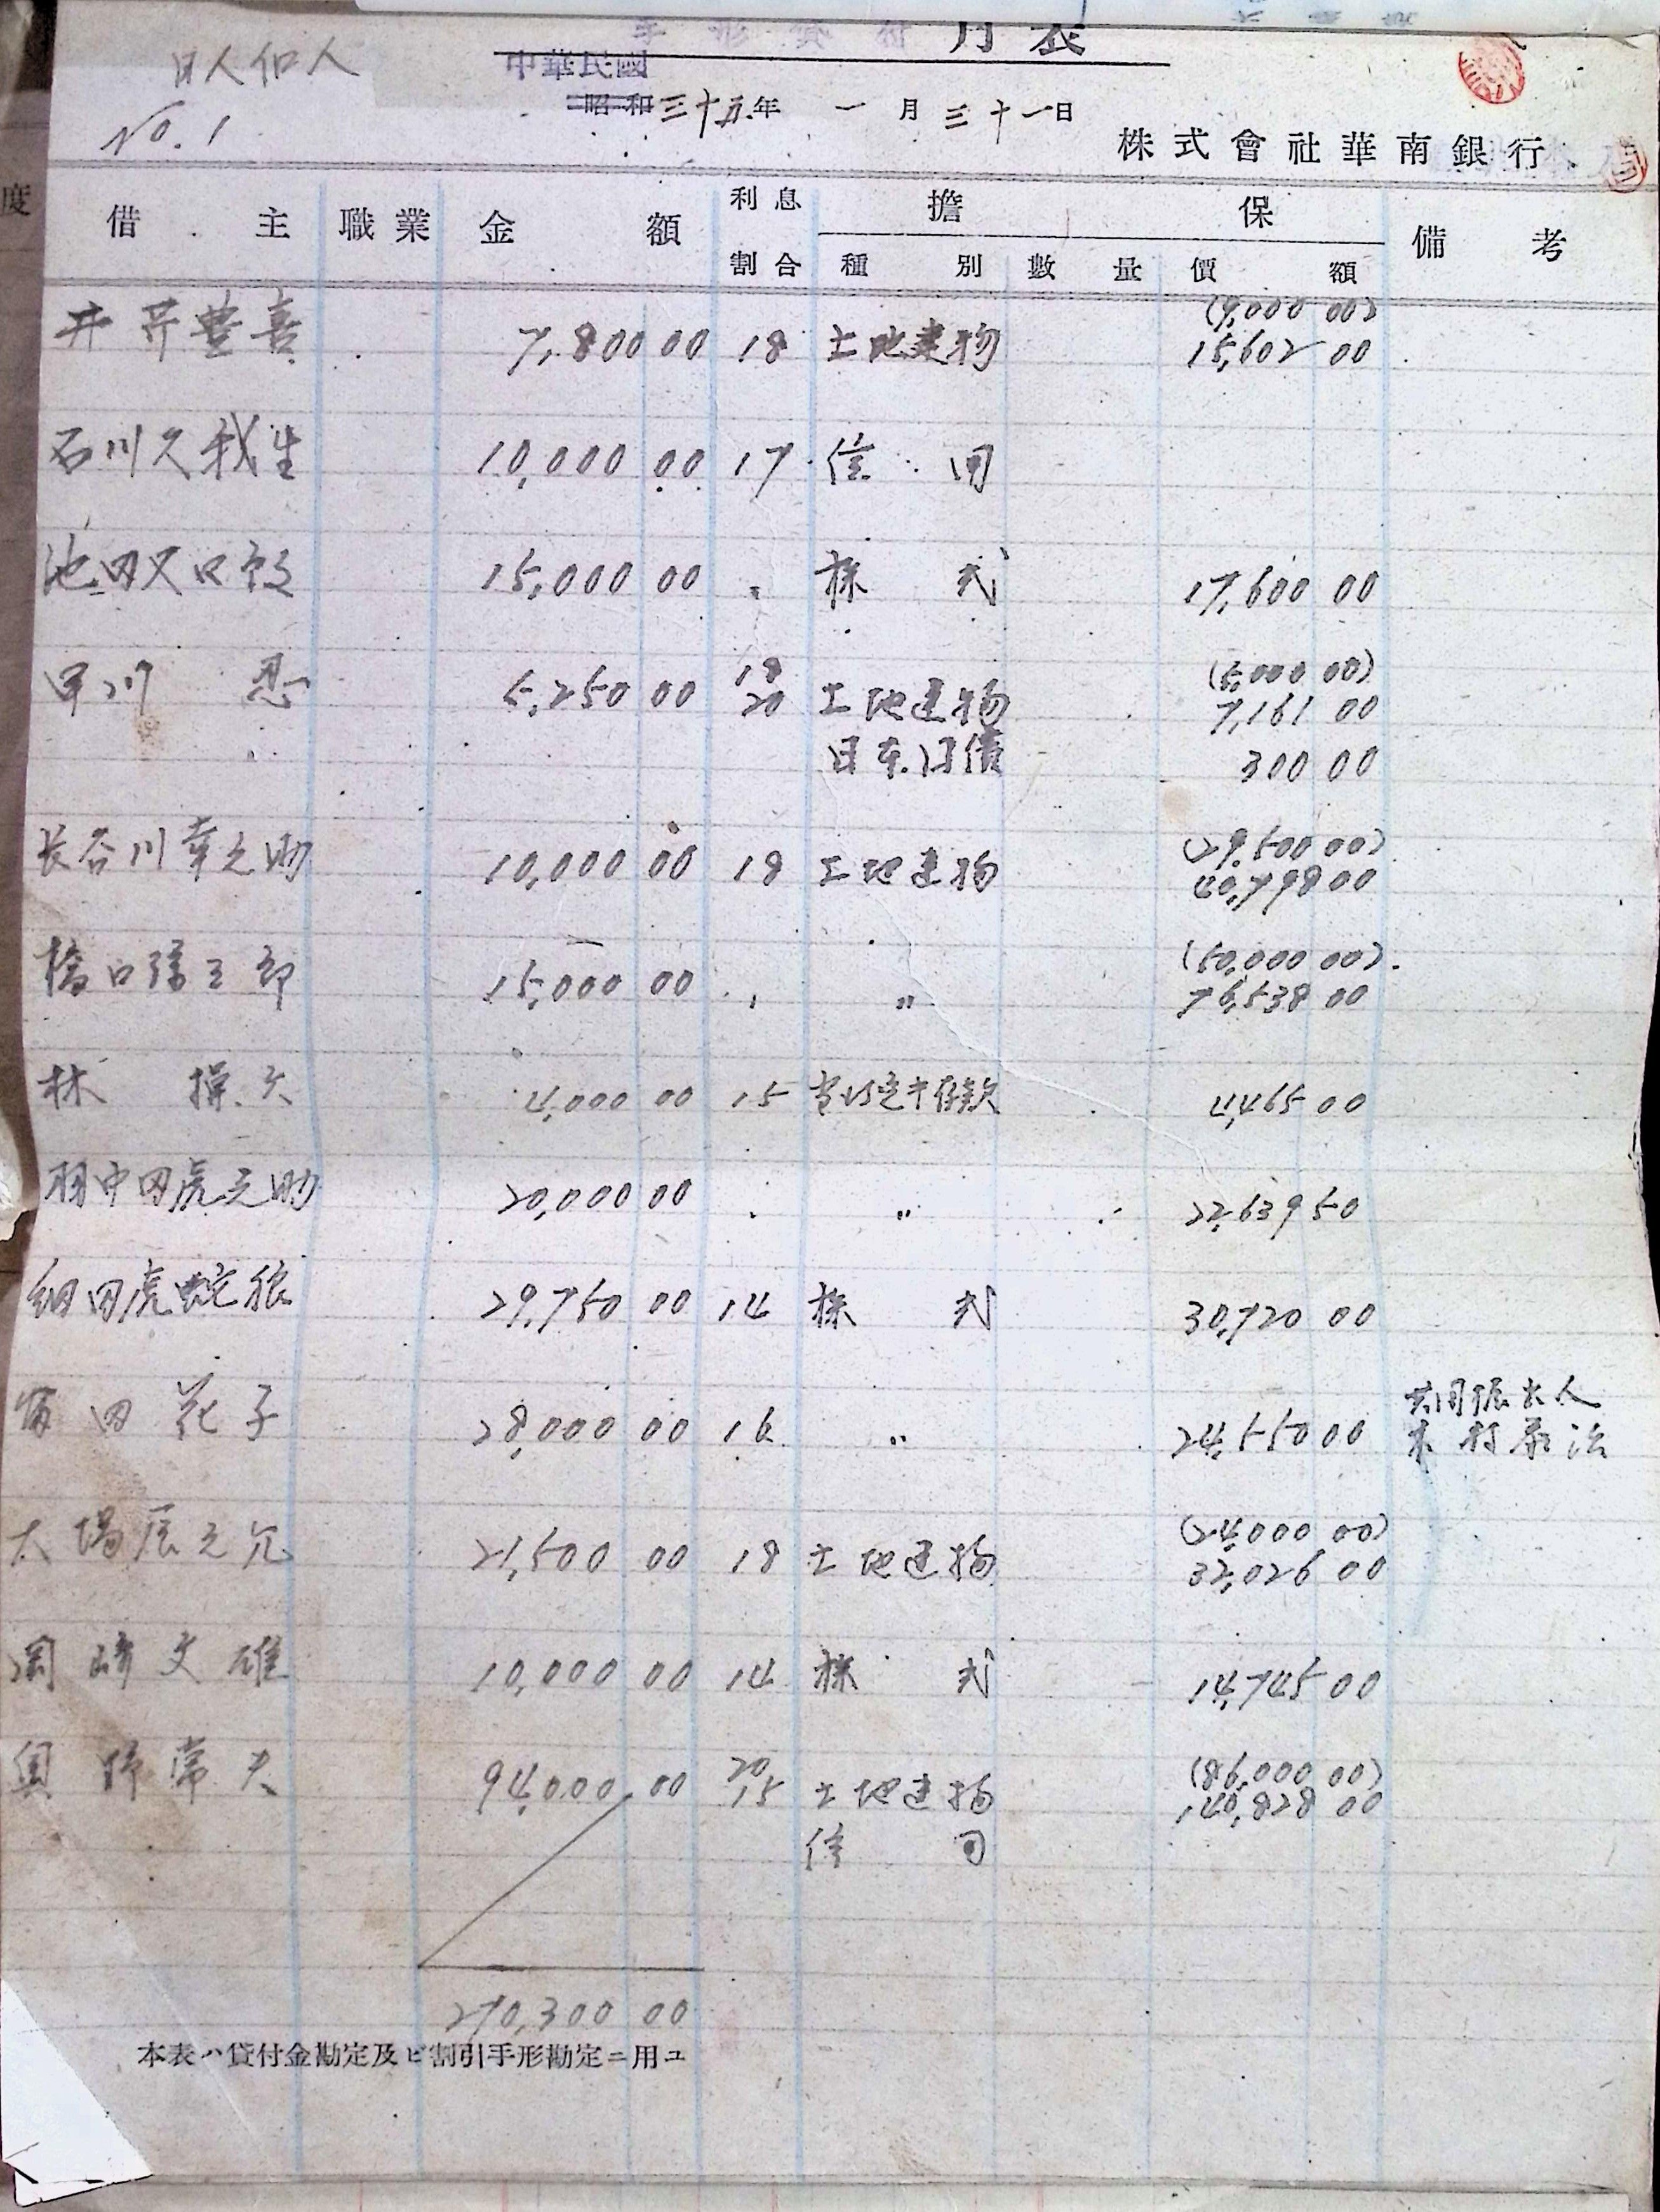 手形貸付 月表
日人個人
中華民國
昭和三十五年 一月三十一日
No. 1
株式會社華南銀行
借主 職業 金額 利息割合 擔保 備考
種別 數量 價額
井芹豊喜 7,800 00 18 土地建物 (9,000 00)
15,602 00
石川久我生 10,000 00 17 信用
池田又口 15,000 00 〃 株式 17,600 00
早川 忍 5,250 00 18 20 土地建物 (6,000 00)
7,161 00
日本国債 300 00
長谷川幸之助 10,000 00 18 土地建物 (29,500 00)
40,798 00
橋口 三郎 15,000 00 〃 〃 (50,000 00)
76,538 00
林 操 4,000 00 15 存款 4,465 00
羽中田虎之助 20,000 00 〃 〃 22,639 50
細田虎蛇 29,750 00 14 株式 30,720 00
田花子 28,000 00 16 〃 24,550 00 共同振出人
木村 治
大場辰之 21,500 00 18 土地建物 (24,000 00)
32,026 00
岡崎文雄 10,000 00 14 株式 14,745 00
奥野常夫 94,000 00 20 15 土地建物 (86,000 00)
140,828 00
信用
270,300 00
本表ハ貸付金勘定及ビ割引手形勘定ニ用ユ